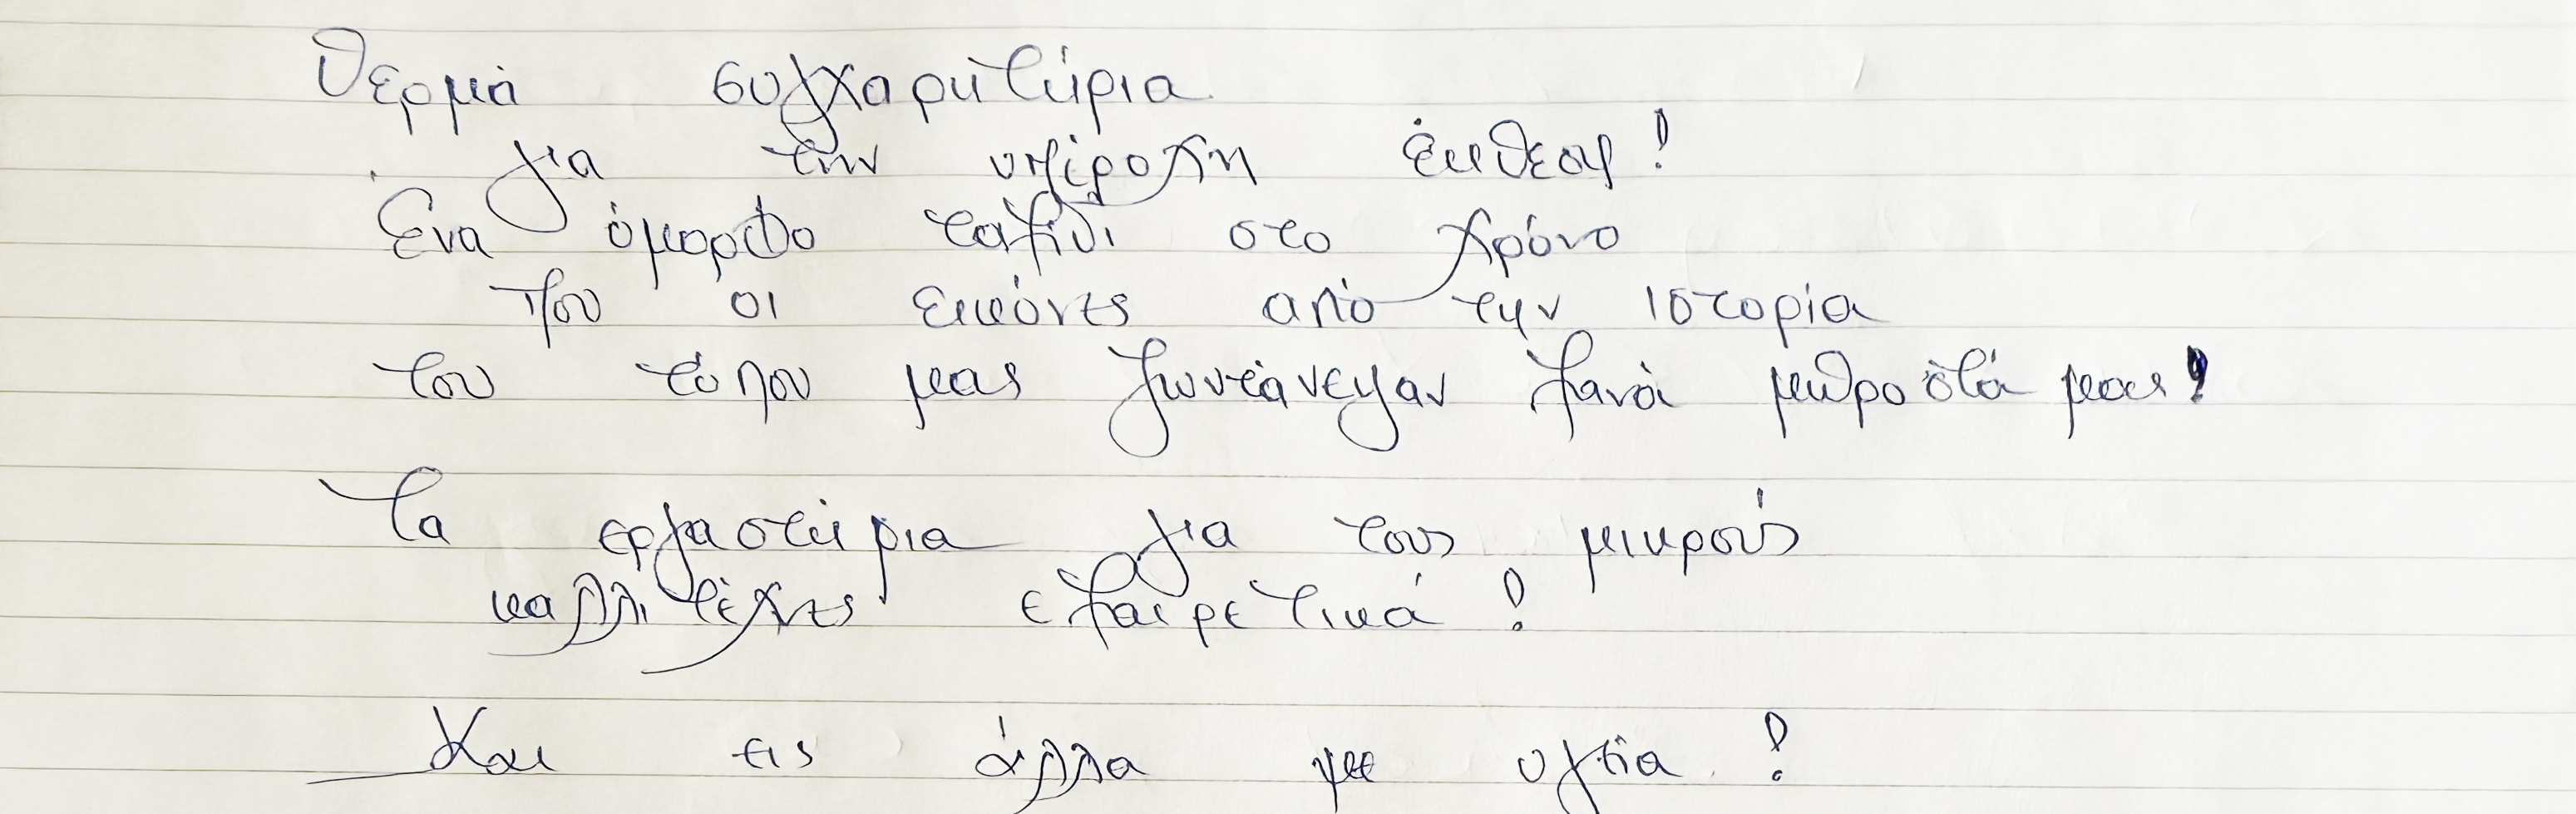 Θερμά συγχαρητήρια
για την υπέροχη έκθεση!
Ένα όμορφο ταξίδι στο χρόνο
που οι εικόνες από την ιστορία
του τόπου μας ζωντάνεψαν ξανά μπροστά μας!
Τα εργαστήρια για τους μικρούς
καλλιτέχνες εξαιρετικά!
Και εις άλλα με υγεία!